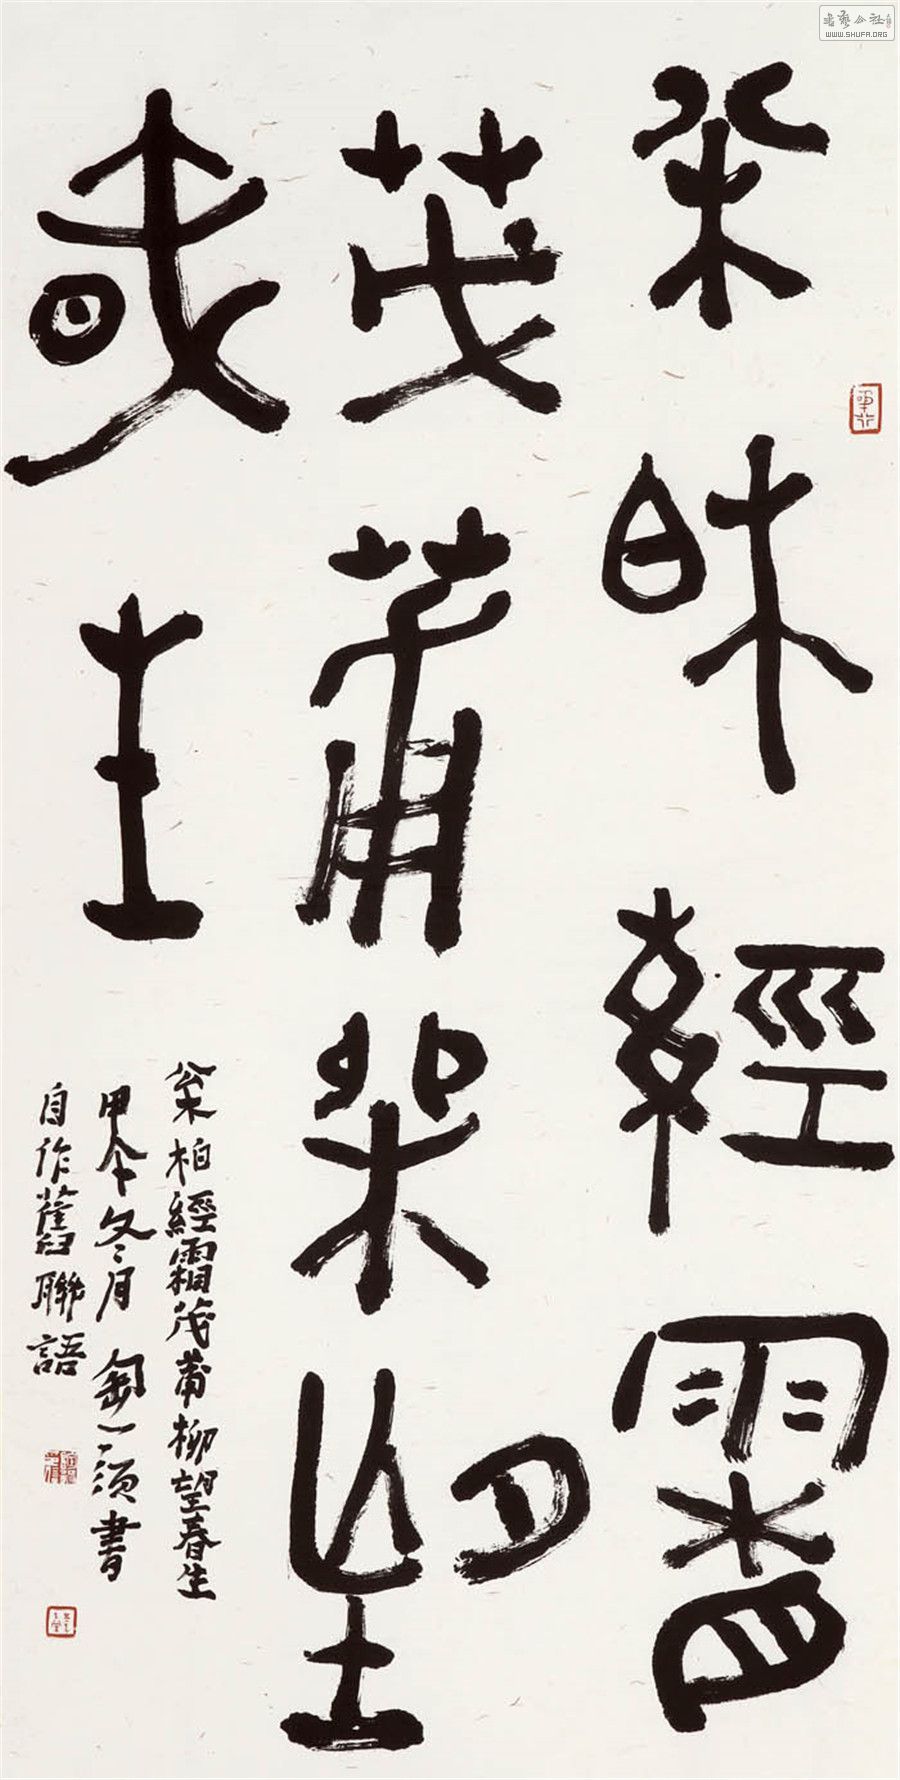 書藝公社
WWW.SHUFA.ORG
枀柏經霜
茂莆柳望
春生
枀柏經霜茂莆柳望春生
甲午冬月匋一須書
自作舊聯語